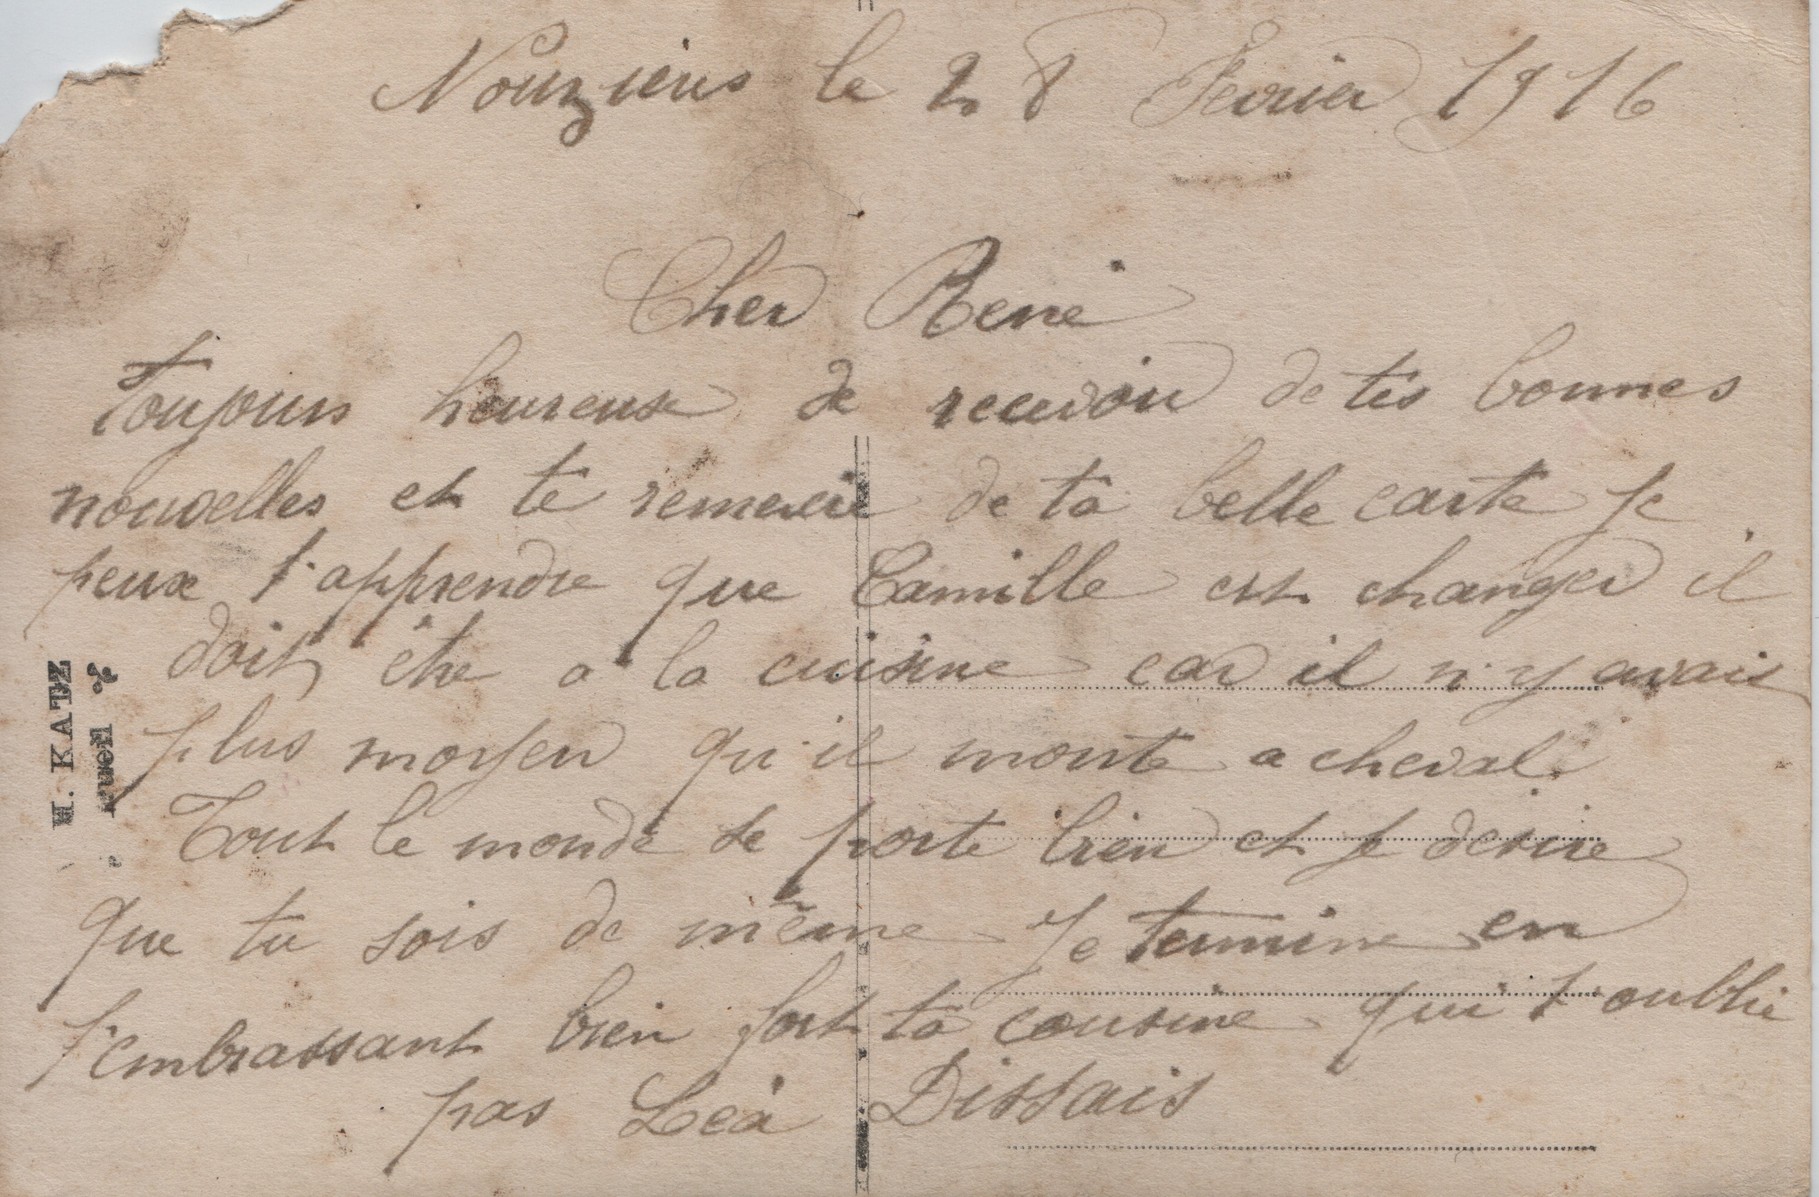 Nouziers le 28 Fevrier 1916
Cher René
Toujours heureuse de recevoir de tes bonnes
nouvelles et te remercie de ta belle carte Je
peux t'apprendre que Camille est changer il
doit être a la cuisine car il n'y avais
plus moyen qu'il monte a cheval.
Tout le monde se porte bien et je desire
que tu sois de même Je termine en
t'embrassant bien fort ta cousine qui t'oublie
pas Léa Dissais
M. KATZ